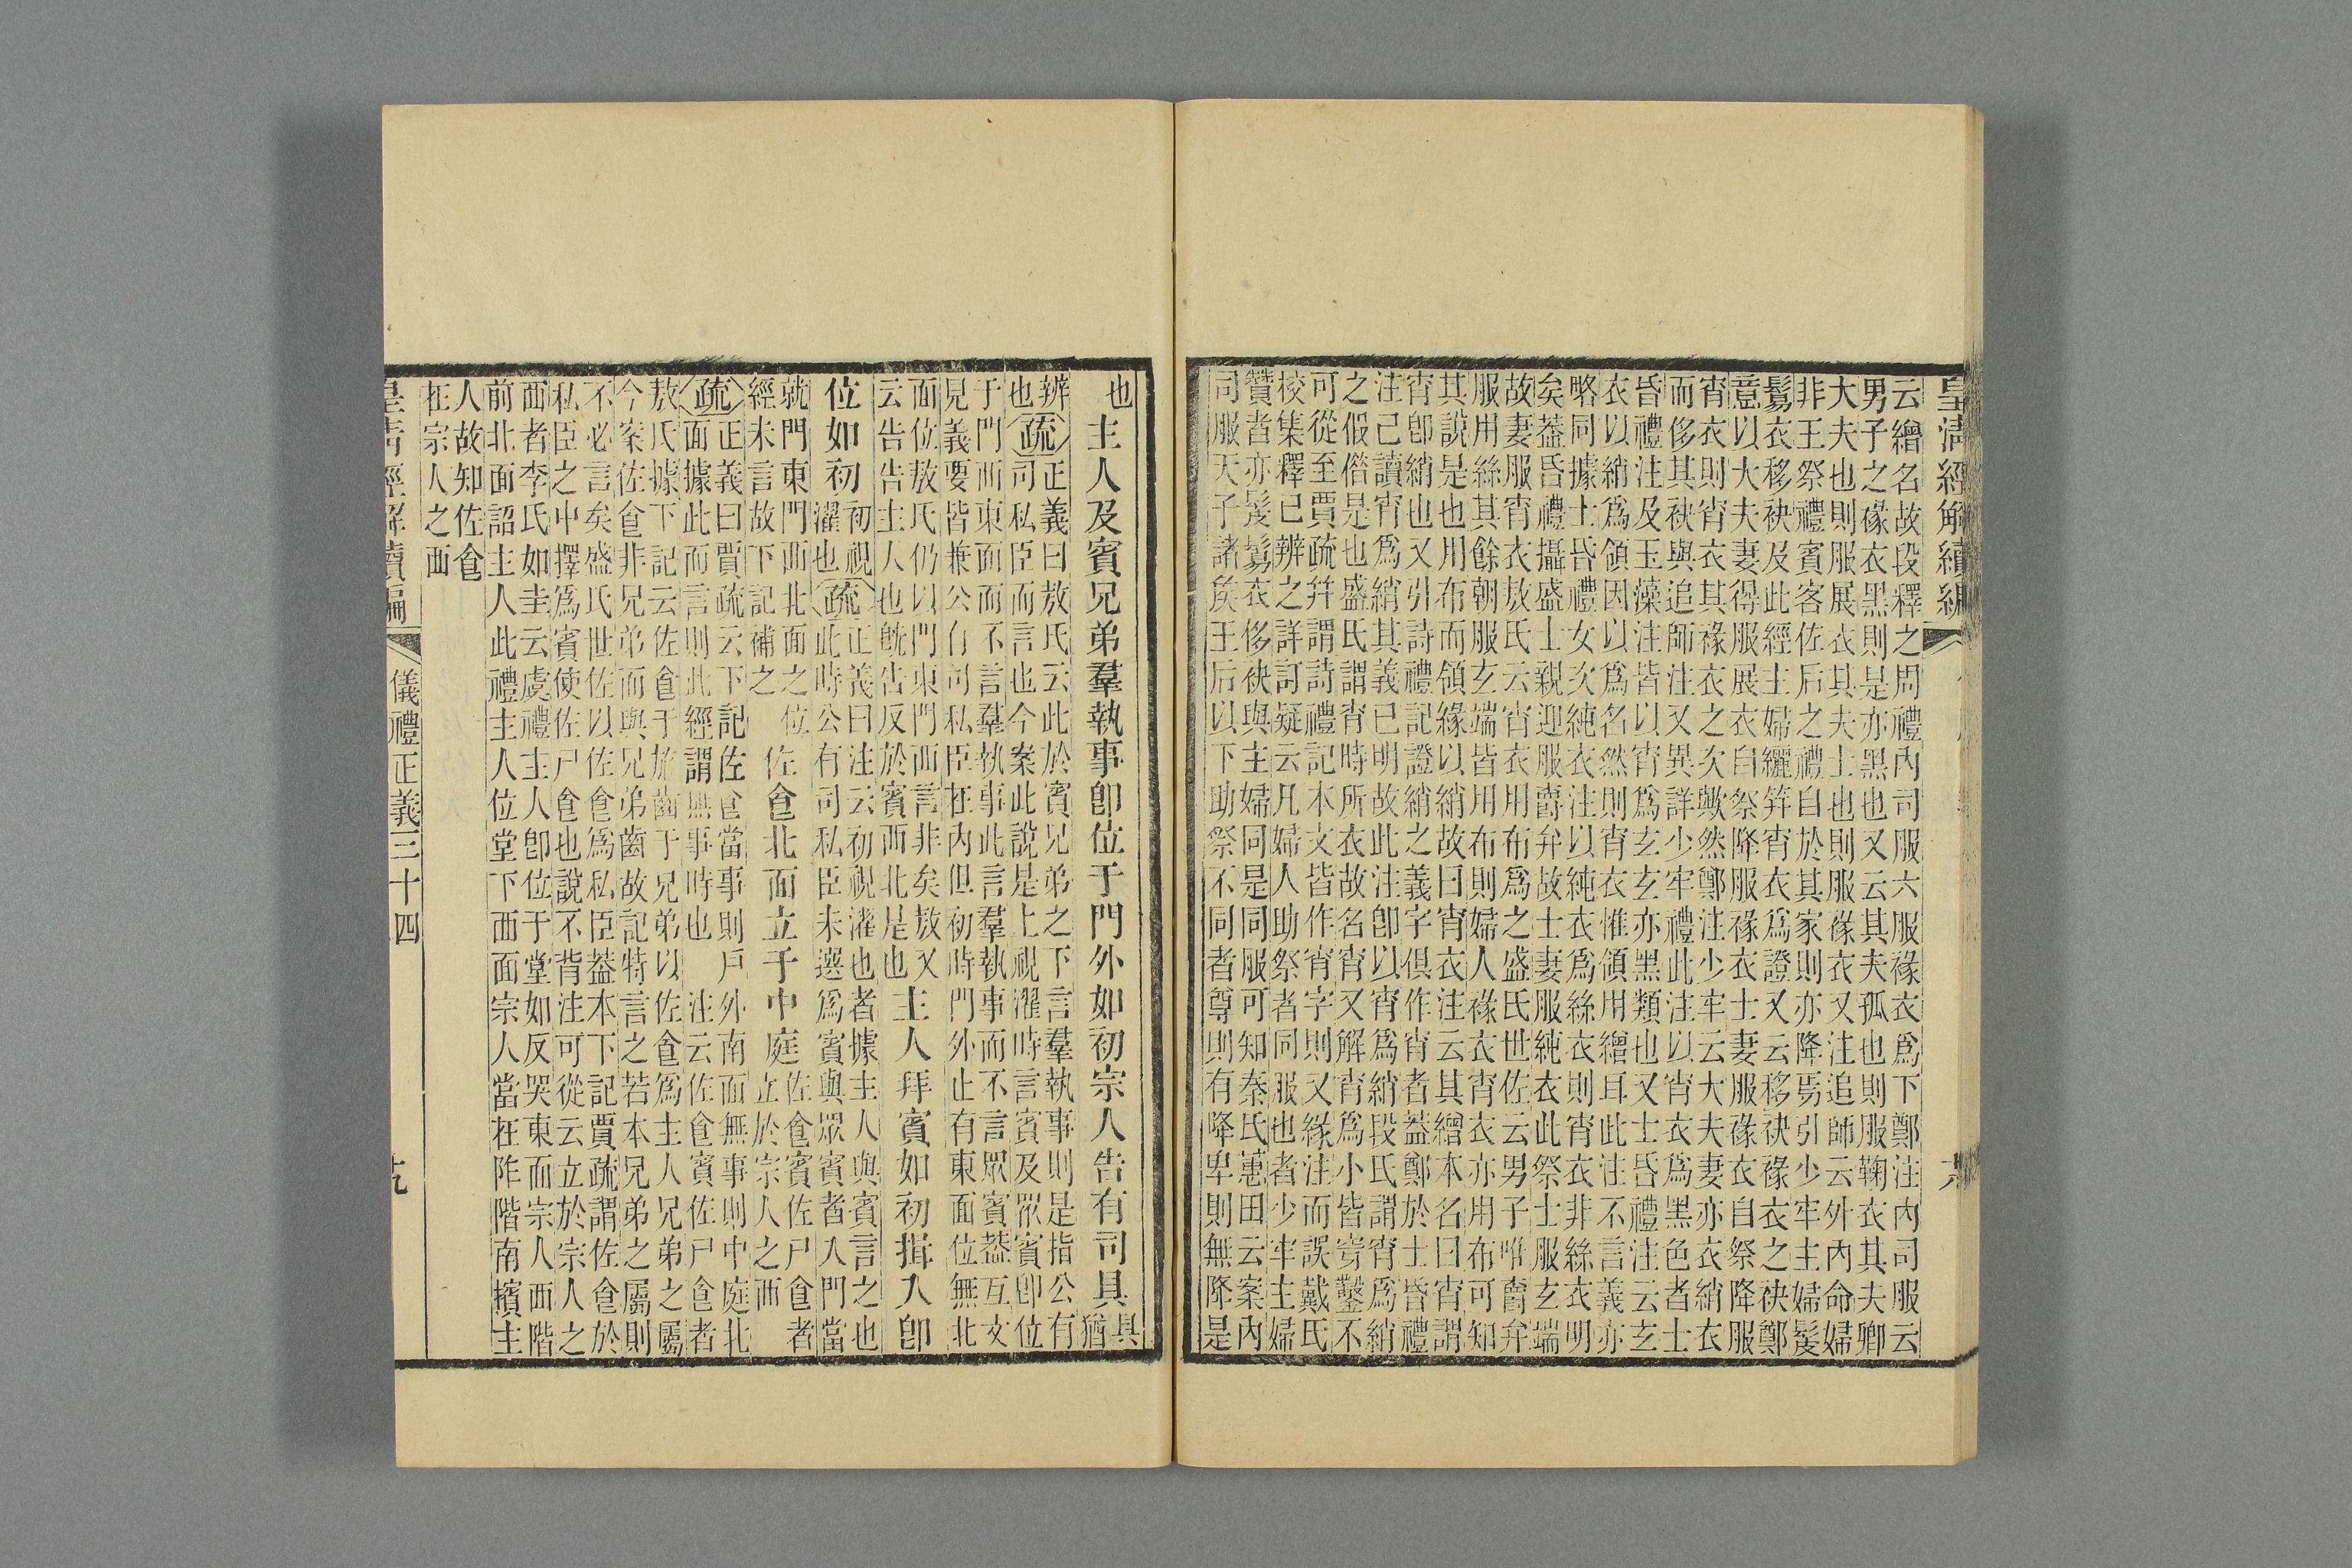 皇淸經解續編
云繒名故段釋之周禮內司服六服褖衣爲下鄭注內司服云
男子之褖衣黑則是亦黑也又云其夫孤也則服鞠衣其夫卿
大夫也則服展衣其夫士也則服褖衣又注追師云外內命婦
非王祭禮賓客佐后之禮自於其家則亦降焉引少牢主婦髲
鬄衣移袂及此經主婦纚笄宵衣爲證又云移袂褖衣之袂鄭
意以大夫妻得服展衣自祭降服褖衣士妻服褖衣自祭降服
宵衣則宵衣其褖衣之次歟然鄭注少牢云大夫妻亦衣綃衣
而侈其袂與追師注又異詳少牢禮此注以宵衣爲黑色者士
昏禮注及玉藻注皆以宵爲玄玄亦黑類也又士昏禮注云玄
衣以綃爲領因以爲名然則宵衣惟領用繒耳此注不言義亦
略同據士昏禮女次純衣注以純衣爲絲衣則宵衣非絲衣明
矣葢昏禮攝盛士親迎服爵弁故士妻服純衣此祭士服玄端
故妻服宵衣敖氏云宵衣用布爲之盛氏世佐云男子唯爵弁
服用絲其餘朝服玄端皆用布則婦人褖衣宵衣亦用布可知
其說是也用布而領緣以綃故曰宵衣注云其繒本名曰宵謂
宵卽綃也又引詩禮記證綃之義字俱作宵者葢鄭於士昏禮
注已讀宵爲綃其義已明故此注卽以宵爲綃段氏謂宵爲綃
之假借是也盛氏謂宵時所衣故名宵又解宵爲小皆穿鑿不
可從至賈疏幷謂詩禮記本文皆作宵字則又緣注而誤戴氏
校集釋已辨之詳訂疑云凡婦人助祭者同服也者少牢主婦
贊者亦髲鬄衣侈袂與主婦同是同服可知秦氏蕙田云案內
同服天子諸矦王后以下助祭不同者尊則有降卑則無降是
也　主人及賓兄弟羣執事卽位于門外如初宗人告有司具具猶
辨也〈疏〉正義曰敖氏云此於賓兄弟之下言羣執事則是指公有
司私臣而言也今案此說是上視濯時言賓及眾賓卽位
于門西東面而不言羣執事此言羣執事而不言眾賓葢互文
見義要皆兼公有司私臣在內但初時門外止有東面位無北
面位敖氏仍以門東門西言非矣敖又
云告告主人也旣告反於賓西北是也　主人拜賓如初揖入卽
位如初初視濯也〈疏〉正義曰注云初視濯也者據主人與賓言之也
此時公有司私臣未選爲賓與眾賓者入門當
就門東門西北面之位
經未言故下記補之　佐食北面立于中庭佐食賓佐尸食者
立於宗人之西
〈疏〉正義曰賈疏云下記佐食當事則戶外南面無事則中庭北
面據此而言則此經謂無事時也　注云佐食賓佐尸食者
敖氏據下記云佐食于旅齒于兄弟以佐食爲主人兄弟之屬
今案佐食非兄弟而與兄弟齒故記特言之若本兄弟之屬則
不必言矣盛氏世佐以佐食爲私臣葢本下記賈疏謂佐食於
私臣之中擇爲賓使佐尸食也說不背注可從云立於宗人之
西者李氏如圭云虞禮主人卽位于堂如反哭東面宗人西階
前北面詔主人此禮主人位堂下西面宗人當在阼階南擯主
人故知佐食
在宗人之西
皇淸經解續編
儀禮正義三十四